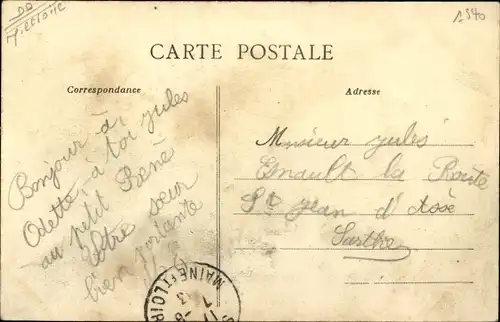 CARTE POSTALE
Correspondance
Adresse
Bonjour à
Odette, à toi jules
au petit René
Votre sœur
bien portante
Monsieur jules
Esnault la Route
St jean d'Assé
Sarthe
MAINE ET LOIRE